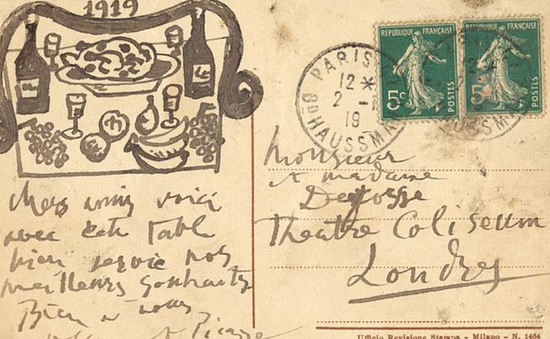 1919
chers amis voici
avec cette table
bien servie nos
meilleurs souhaits
Bien a vous
et Picasso
REPUBLIQUE FRANÇAISE
5c
POSTES
REPUBLIQUE FRANÇAISE
5c
POSTES
PARIS
12
2
19
Bd HAUSSMA
USSM
Monsieur
et madame
Theatre Coliseum
Londres
Ufficio Revisione Stampa - Milano - N. 1464